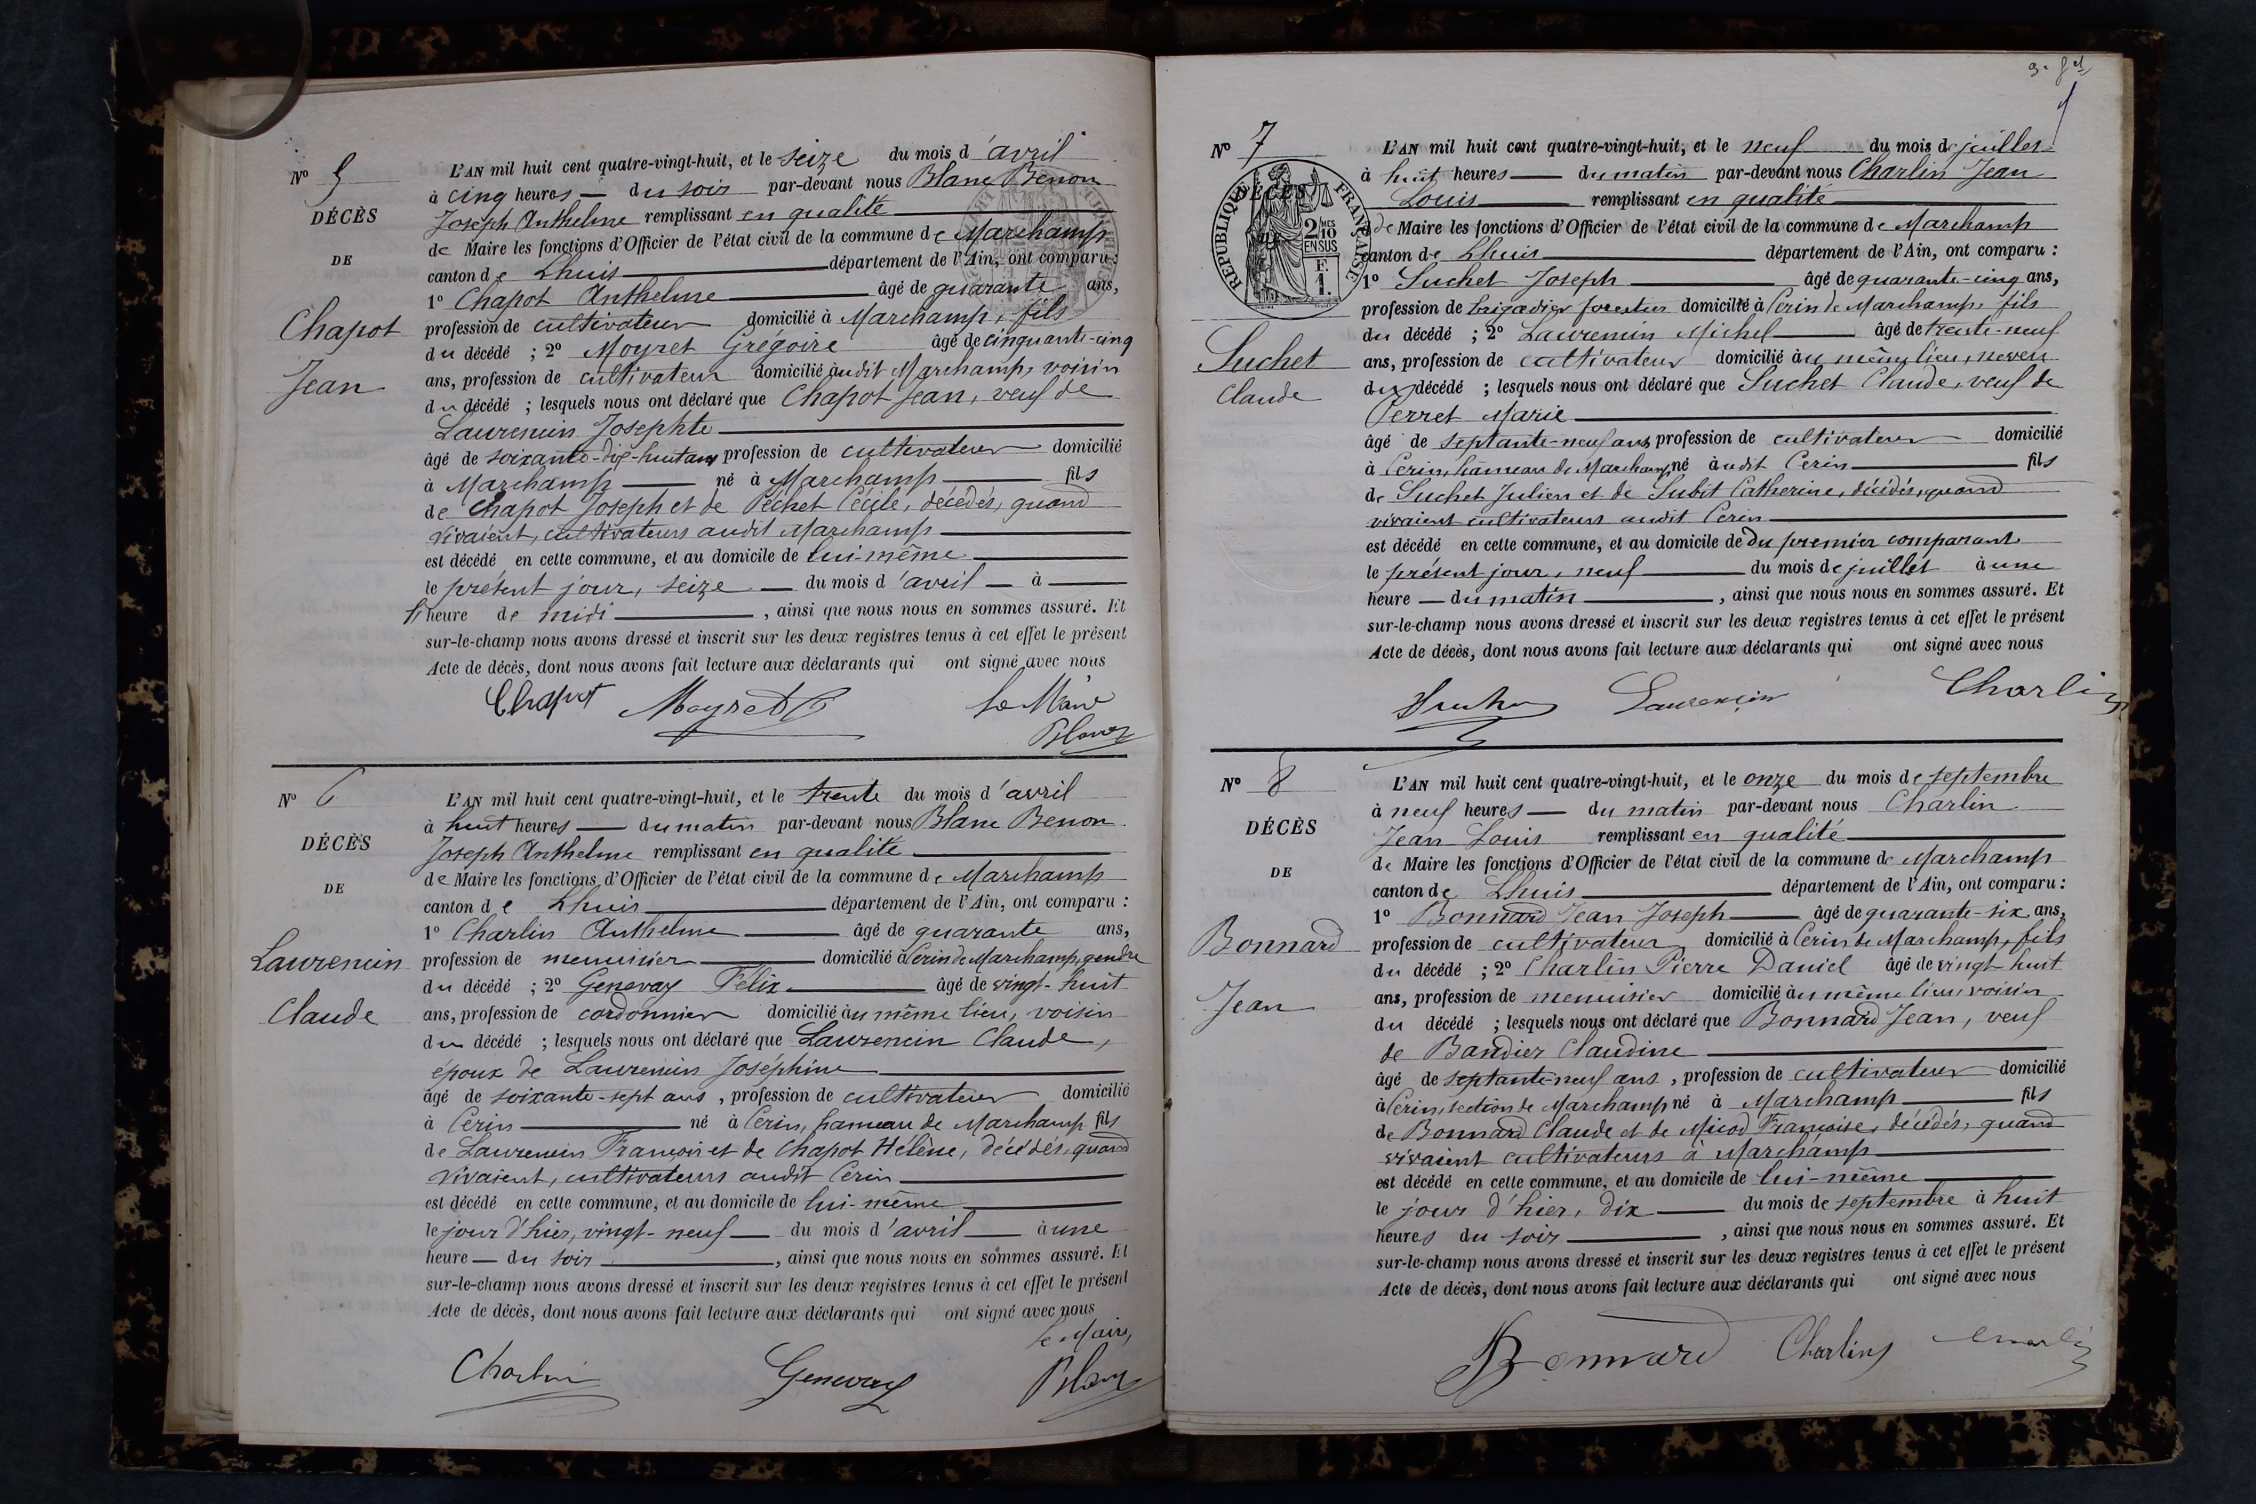 Nº 5
DÉCÈS
DE
Chapot
Jean
L'AN mil huit cent quatre-vingt-huit, et le seize du mois d'avril
à cinq heures du soir par-devant nous Blanc Benon
Joseph Anthelme remplissant en qualité
de Maire les fonctions d'Officier de l'état civil de la commune de Marchamp
canton de Lhuis département de l'Ain, ont comparu :
1º Chapot Anthelme âgé de quarante ans,
profession de cultivateur domicilié à Marchamp, fils
du décédé ; 2º Moyret Grégoire âgé de cinquante-cinq
ans, profession de cultivateur domicilié audit Marchamp, voisin
du décédé ; lesquels nous ont déclaré que Chapot Jean, veuf de
Laurencin Josephte
âgé de soixante-dix-huit ans profession de cultivateur domicilié
à Marchamp né à Marchamp fils
de Chapot Joseph et de Péchet Cécile, décédés, quand
vivaient, cultivateurs audit Marchamp
est décédé en cette commune, et au domicile de lui-même
le présent jour, seize du mois d'avril à
heure de midi , ainsi que nous nous en sommes assuré. Et
sur-le-champ nous avons dressé et inscrit sur les deux registres tenus à cet effet le présent
Acte de décès, dont nous avons fait lecture aux déclarants qui ont signé avec nous
Chapot Moyret Le Maire
Blanc
Nº 6
DÉCÈS
DE
Laurencin
Claude
L'AN mil huit cent quatre-vingt-huit, et le trente du mois d'avril
à huit heures du matin par-devant nous Blanc Benon
Joseph Anthelme remplissant en qualité
de Maire les fonctions d'Officier de l'état civil de la commune de Marchamp
canton de Lhuis département de l'Ain, ont comparu :
1º Charlin Anthelme âgé de quarante ans,
profession de menuisier domicilié à Cerin de Marchamp, gendre
du décédé ; 2º Genevay Félix âgé de vingt-huit
ans, profession de cordonnier domicilié au même lieu, voisin
du décédé ; lesquels nous ont déclaré que Laurencin Claude,
époux de Laurencin Joséphine
âgé de soixante-sept ans , profession de cultivateur domicilié
à Cerin né à Cerin, hameau de Marchamp fils
de Laurencin François et de Chapot Hélène, décédés, quand
vivaient, cultivateurs audit Cerin
est décédé en cette commune, et au domicile de lui-même
le jour d'hier, vingt-neuf du mois d'avril à une
heure du soir , ainsi que nous nous en sommes assuré. Et
sur-le-champ nous avons dressé et inscrit sur les deux registres tenus à cet effet le présent
Acte de décès, dont nous avons fait lecture aux déclarants qui ont signé avec nous
le Maire,
Charlin Genevay Blanc
Nº 7
DÉCÈS
RÉPUBLIQUE FRANÇAISE
2/10 MES
EN SUS
F.
1.
Suchet
Claude
L'AN mil huit cent quatre-vingt-huit, et le neuf du mois de juillet
à huit heures du matin par-devant nous Charlin Jean
Louis remplissant en qualité
de Maire les fonctions d'Officier de l'état civil de la commune de Marchamp
canton de Lhuis département de l'Ain, ont comparu :
1º Suchet Joseph âgé de quarante-cinq ans,
profession de brigadier forestier domicilié à Cerin de Marchamp, fils
du décédé ; 2º Laurencin Michel âgé de trente-neuf
ans, profession de cultivateur domicilié au même lieu, neveu
du décédé ; lesquels nous ont déclaré que Suchet Claude, veuf de
Perret Marie
âgé de septante-neuf ans profession de cultivateur domicilié
à Cerin, hameau de Marchamp né audit Cerin fils
de Suchet Julien et de Subit Catherine, décédés, quand
vivaient cultivateurs audit Cerin
est décédé en cette commune, et au domicile de du premier comparant
le présent jour, neuf du mois de juillet à une
heure du matin , ainsi que nous nous en sommes assuré. Et
sur-le-champ nous avons dressé et inscrit sur les deux registres tenus à cet effet le présent
Acte de décès, dont nous avons fait lecture aux déclarants qui ont signé avec nous
Laurencin Charlin
Nº 8
DÉCÈS
DE
Bonnard
Jean
L'AN mil huit cent quatre-vingt-huit, et le onze du mois de septembre
à neuf heures du matin par-devant nous Charlin
Jean Louis remplissant en qualité
de Maire les fonctions d'Officier de l'état civil de la commune de Marchamp
canton de Lhuis département de l'Ain, ont comparu :
1º Bonnard Jean Joseph âgé de quarante-six ans,
profession de cultivateur domicilié à Cerin de Marchamp, fils
du décédé ; 2º Charlin Pierre Daniel âgé de vingt huit
ans, profession de menuisier domicilié au même lieu, voisin
du décédé ; lesquels nous ont déclaré que Bonnard Jean, veuf
de Bandier Claudine
âgé de septante-neuf ans , profession de cultivateur domicilié
à Cerin, section de Marchamp né à Marchamp fils
de Bonnard Claude et de Micod Françoise, décédés, quand
vivaient cultivateurs à Marchamp
est décédé en cette commune, et au domicile de lui-même
le jour d'hier, dix du mois de septembre à huit
heures du soir , ainsi que nous nous en sommes assuré. Et
sur-le-champ nous avons dressé et inscrit sur les deux registres tenus à cet effet le présent
Acte de décès, dont nous avons fait lecture aux déclarants qui ont signé avec nous
Bonnard Charlin Charlin